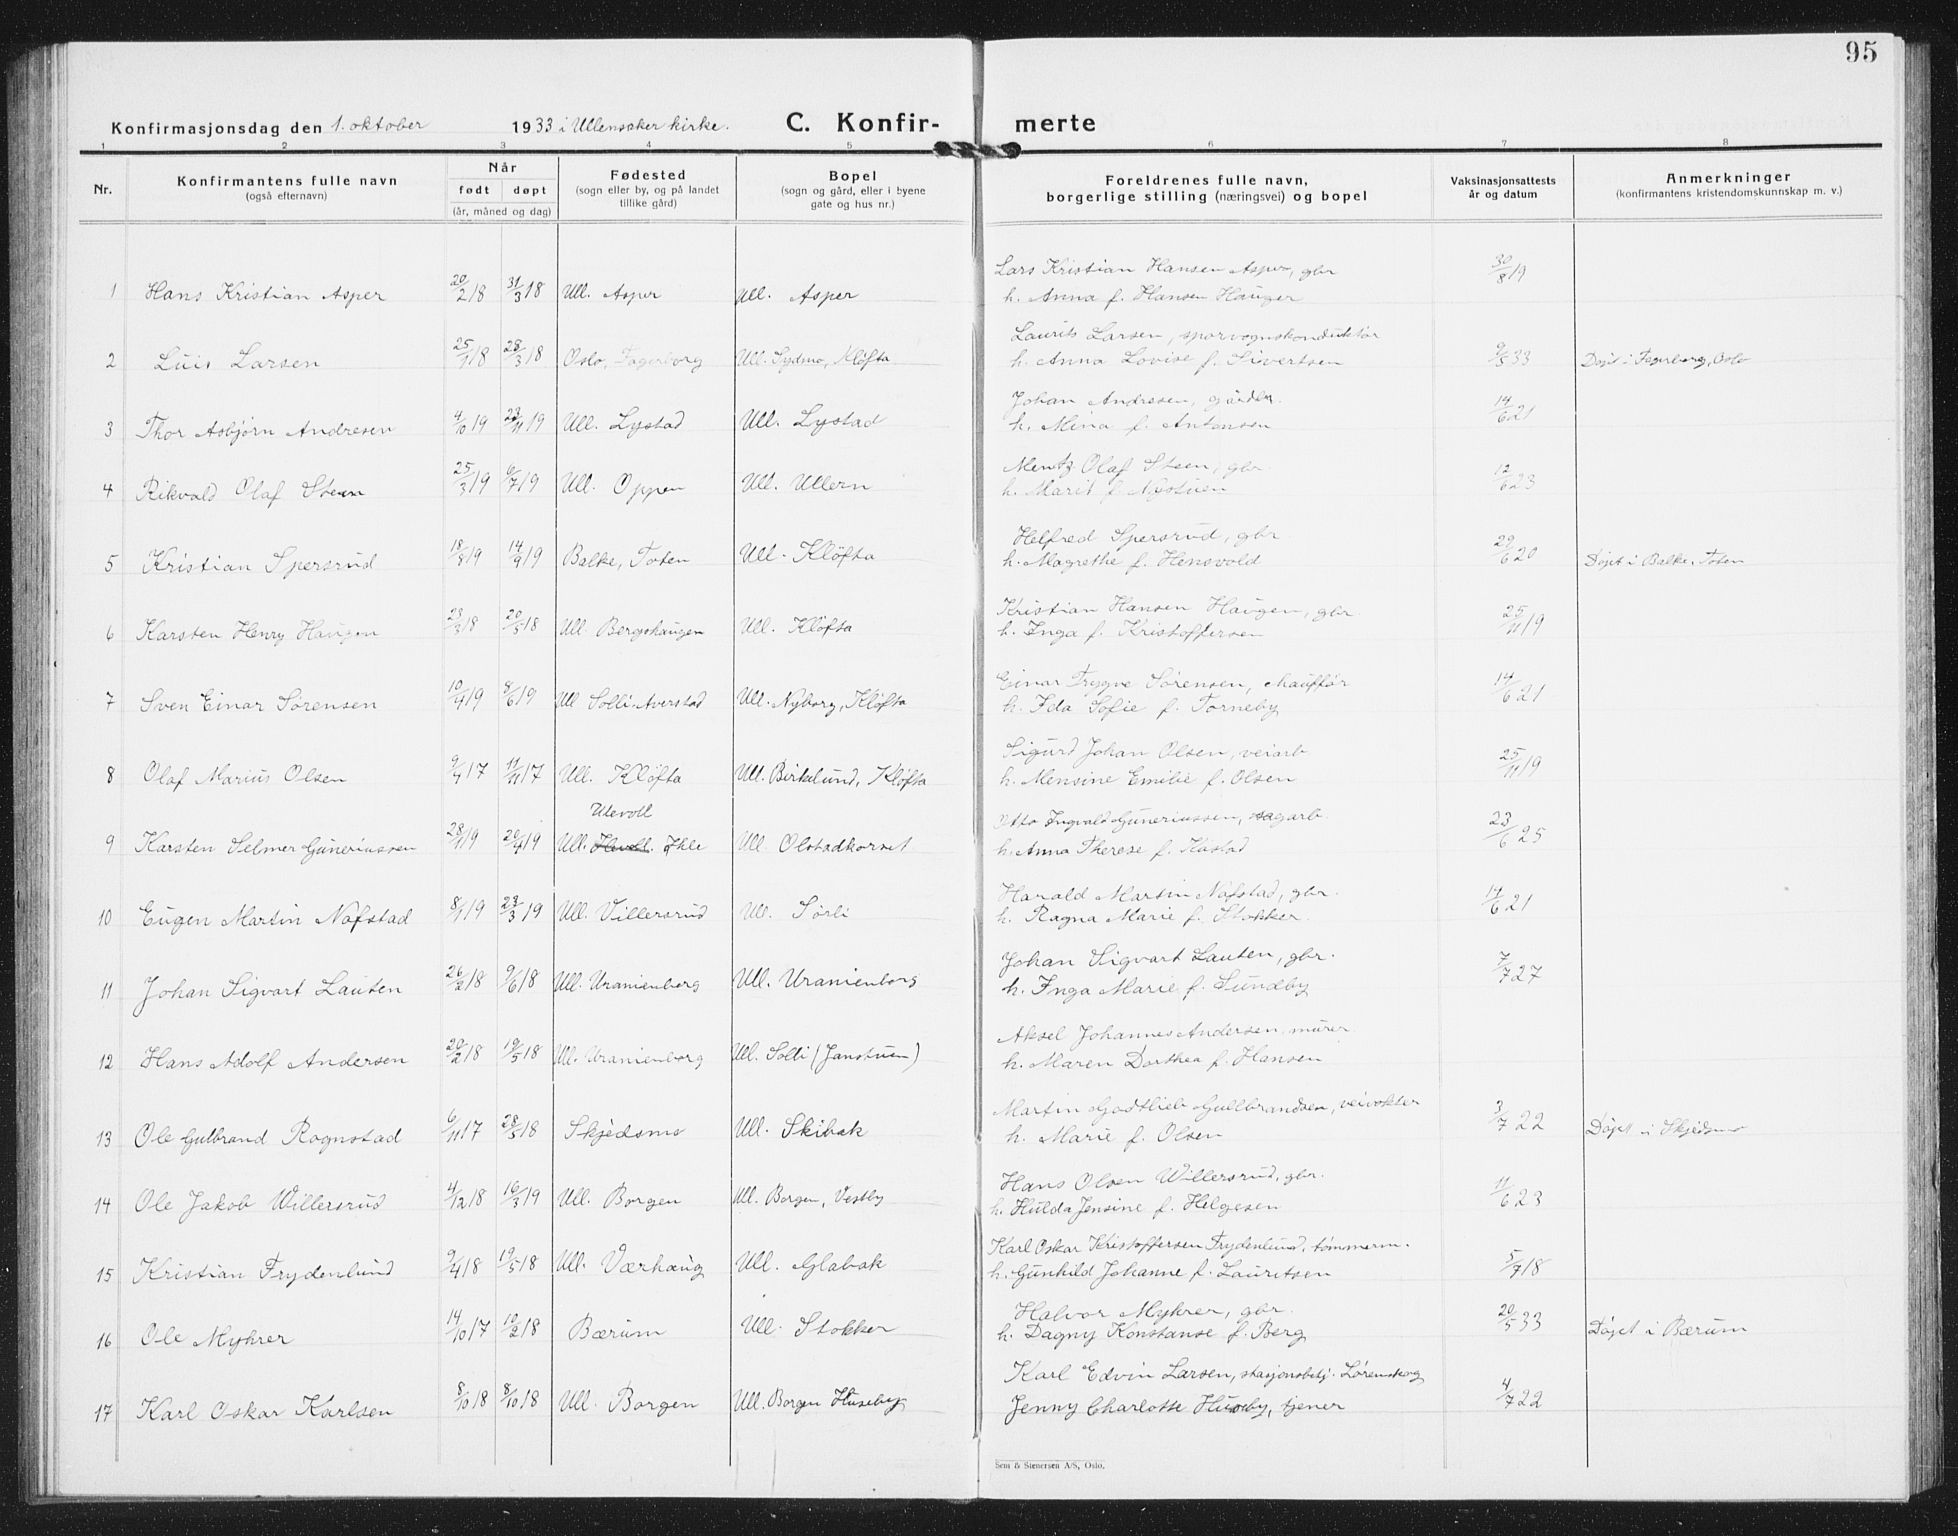 95
Konfirmasjonsdag den 1. oktober 1933 i Ullensaker kirke. C. Konfir- merte
1 2 3 4 5 6 7 8
Nr. Konfirmantens fulle navn (også efternavn) Når født døpt (år, måned og dag) Fødested (sogn eller by, og på landet tillike gård) Bopel (sogn og gård, eller i byene gate og hus nr.) Foreldrenes fulle navn, borgerlige stilling (næringsvei) og bopel Vaksinasjonsattests år og datum Anmerkninger (konfirmantens kristendomskunnskap m. v.)
Lars Kristian Hansen Asper, gbr
1 Hans Kristian Asper 20/2 18 31/3 18 Ull. Asper Ull. Asper h. Anna f. Hansen Hauger 30/8 19
Laurits Larsen, sporvognskonduktør
2 Luis Larsen 25/1 18 28/3 18 Oslo, Fagerborg Ull. Sydmo, Kløfta h. Anna Lovise f. Sivertsen 9/5 33 Døpt i Fagerborg, Oslo
Johan Andresen, gårdbr.
3 Thor Asbjørn Andresen 4/10 19 23/11 19 Ull. Lystad Ull. Lystad h. Mina f. Antonsen 14/6 21
Mentz Olaf Steen, gbr.
4 Rikvald Olaf Steen 25/3 19 6/7 19 Ull. Oppen Ull. Ullern h. Marit f. Nystuen 12/6 23
Helfred Spersrud, gbr.
5 Kristian Spersrud 18/8 19 14/9 19 Balke, Toten Ull. Kløfta h. Magrethe f. Hensvold 29/6 20 Døpt i Balke, Toten
Kristian Hansen Haugen, gbr.
6 Karsten Henry Haugen 23/3 18 20/5 18 Ull. Bergshaugen Ull. Kløfta h. Inga f. Kristoffersen 25/11 19
Einar Trygve Sørensen, chauffør
7 Sven Einar Sørensen 10/4 19 8/6 19 Ull Solli-Averstad Ull. Nyborg, Kløfta h. Ida Sofie f. Torneby 14/6 21
Sigurd Johan Olsen, veiarb
8 Olaf Marius Olsen 9/7 17 11/11 17 Ull. Kløfta Ull. Birkelund, Kløfta h. Mensine Emilie f. Olsen 25/11 19
Utevoll
Otto Ingvald Guneriussen, sagarb
9 Karsten Selmer Guneriussen 28/1 19 20/4 19 Ull. Hevoll. Ihle Ull Olstadkorset h. Anna Therese f. Kåstad 23/6 25
Harald Martin Nafstad, gbr.
10 Eugen Martin Nafstad 8/1 19 23/3 19 Ull. Villersrud Ull. Sørli h. Ragna Marie f. Stokker. 14/6 21
Johan Sigvart Lauten, gbr.
11 Johan Sigvart Lauten 26/2 18 9/6 18 Ull. Uranienborg Ull. Uranienborg h. Inga Marie f. Sundby 7/7 27
Aksel Johannes Andersen, murer
12 Hans Adolf Andersen 20/2 18 19/5 18 Ull. Uranienborg Ull. Solli (Janstuen) h. Maren Dorthea f. Hansen
Martin Godtlieb Gulbrandsen, veivokter
13 Ole Gulbrand Rognstad 6/11 17 28/5 18 Skjedsmo Ull. Skibak h. Marie f. Olsen 3/7 22 Døpt i Skjedsmo
Hans Olsen Willersrud, gbr.
14 Ole Jakob Willersrud 4/12 18 16/3 19 Ull. Borgen Ull. Borgen, Vestby h. Hulda Jensine f. Helgesen 11/6 23
Karl Oskar Kristoffersen Frydenlund, tømmerm.
15 Kristian Frydenlund 9/4 18 19/5 18 Ull. Værhaug Ull. Glabak h. Gunhild Johanne f. Lauritsen 5/7 18
Halvor Myhrer, gbr.
16 Ole Myhrer 14/10 17 10/2 18 Bærum Ull. Stokker h. Dagny Konstanse f. Berg 20/5 33 Døpt i Bærum
Karl Edvin Larsen, stasjonsbetj. Lørenskog
17 Karl Oskar Karlsen 8/10 18 8/10 18 Ull. Borgen Ull. Borgen Huseby Jenny Charlotte Huseby, tjener 4/7 22
Sem & Stenersen A/S, Oslo.